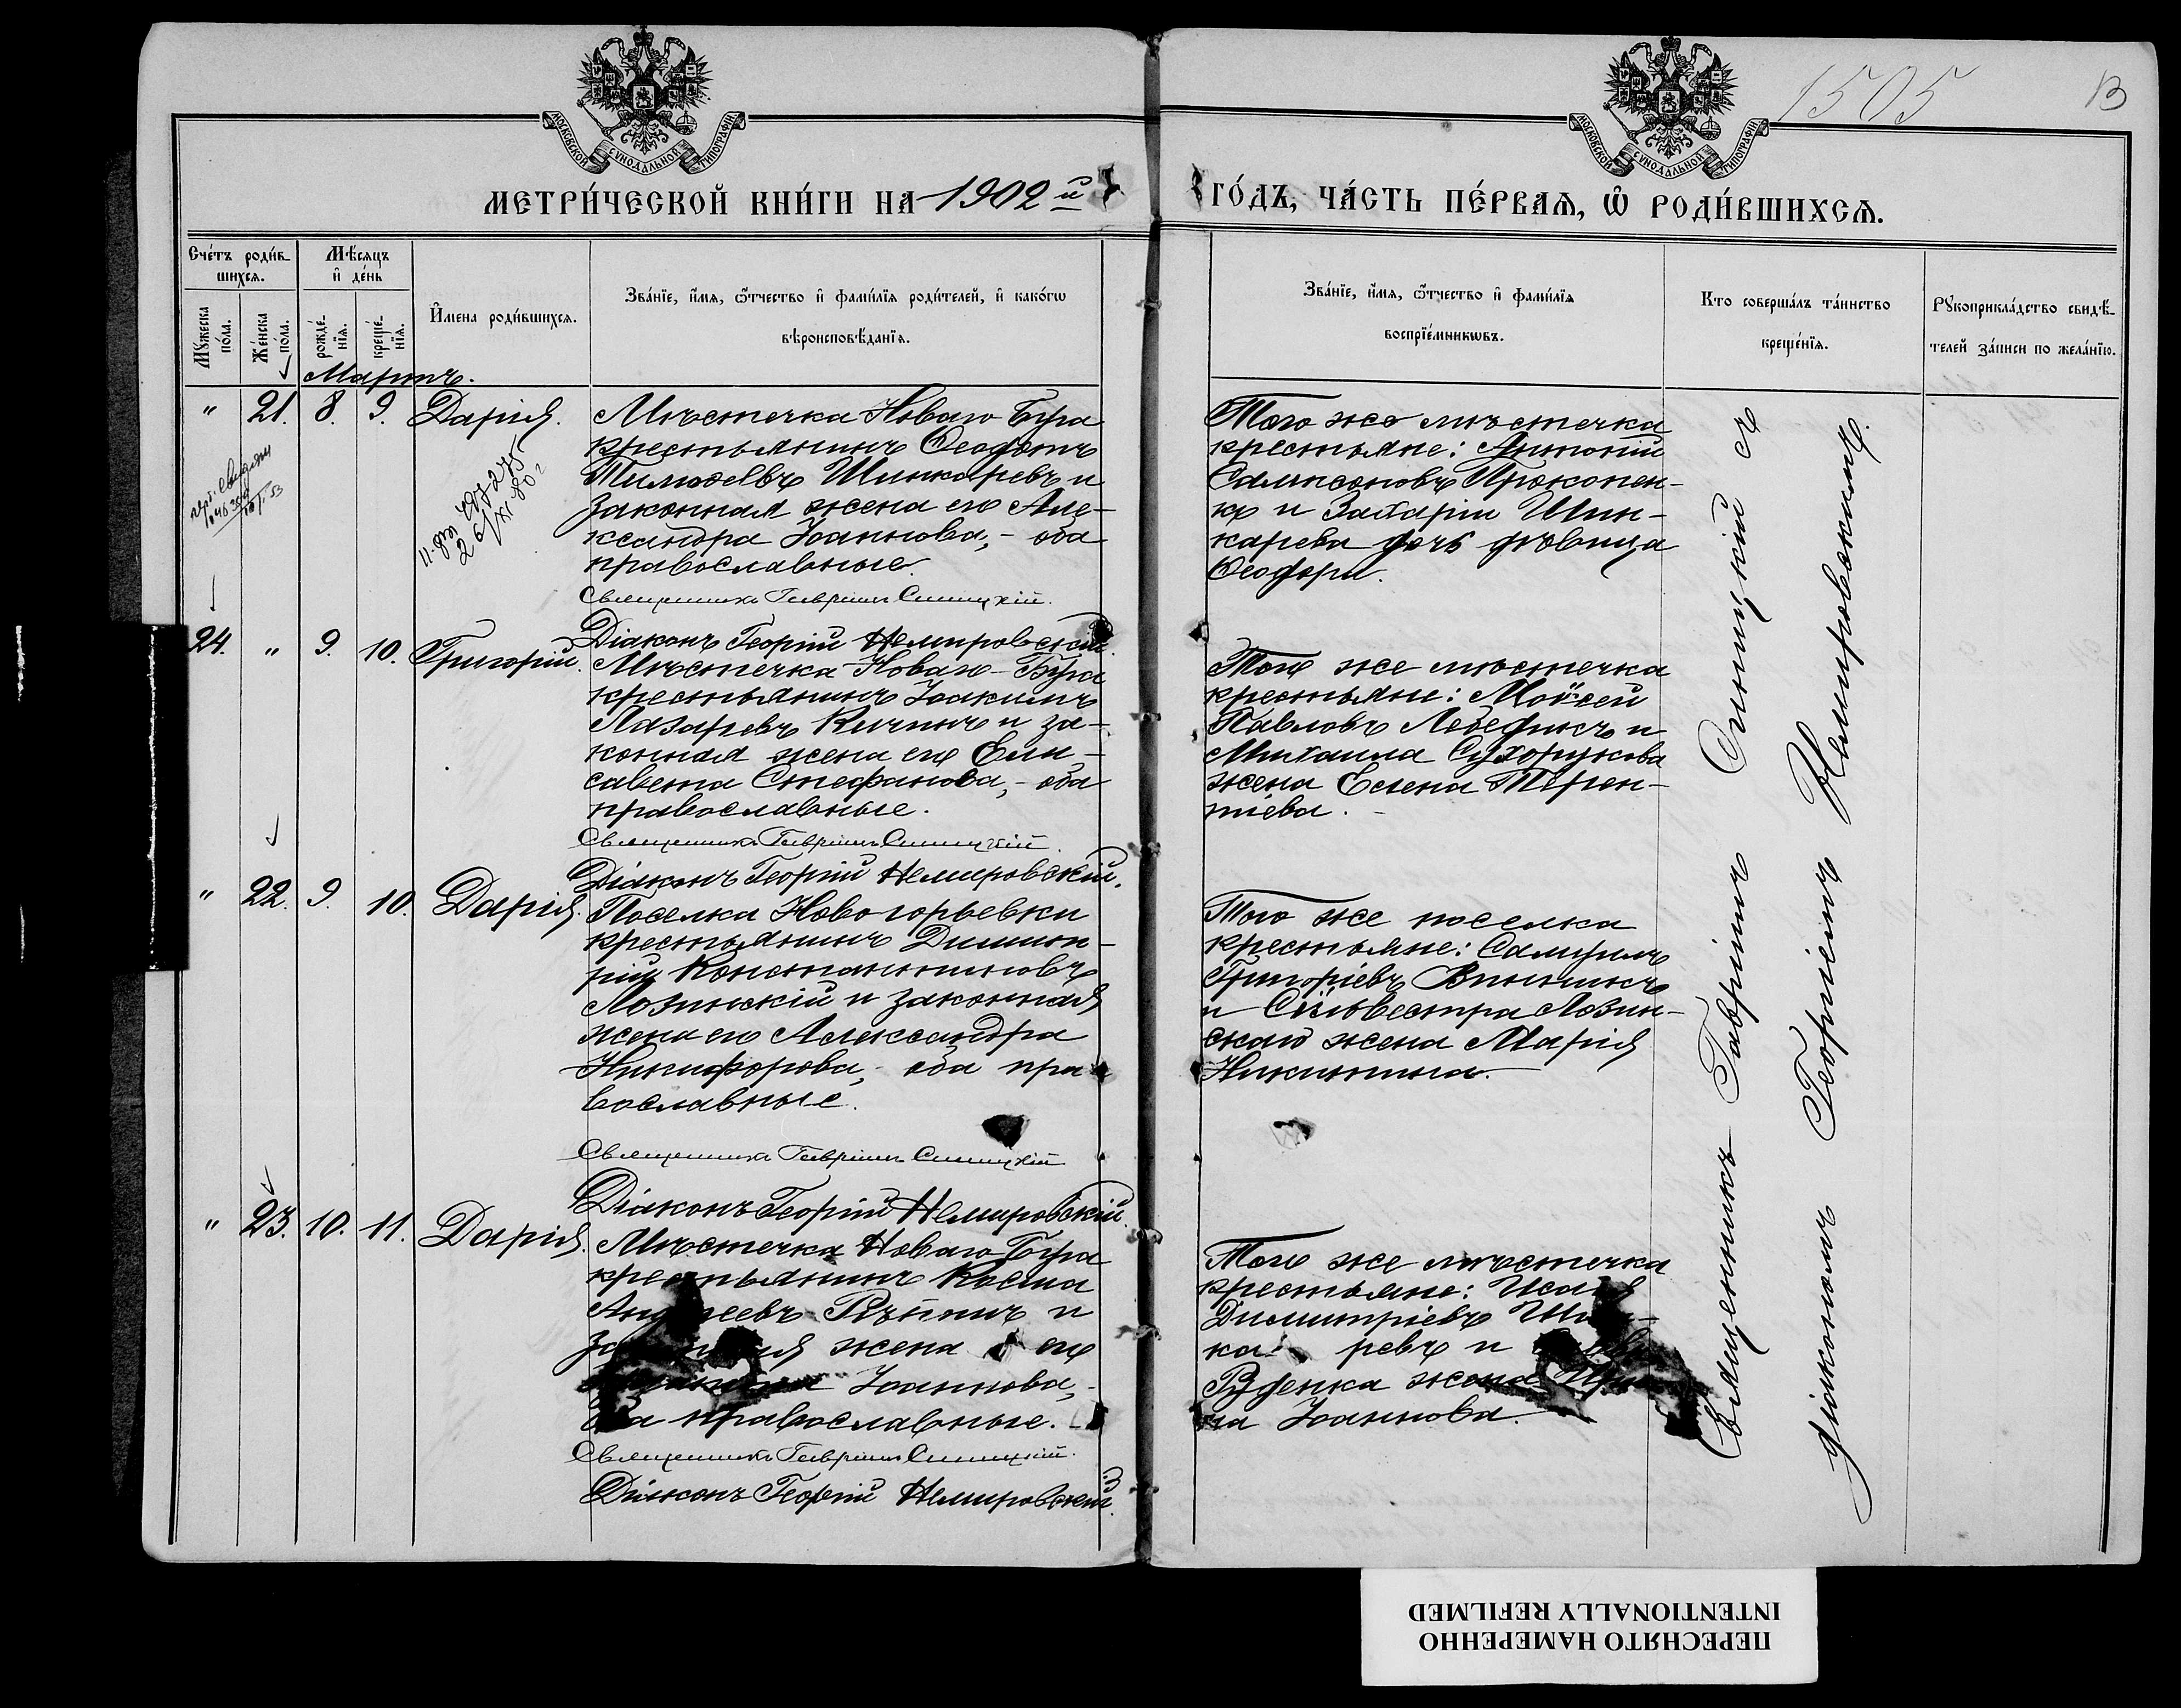 МОСКОВСКОЙ СѴНОДАЛЬНОЙ ТИПОГРАФІИ
МОСКОВСКОЙ СѴНОДАЛЬНОЙ ТИПОГРАФІИ
1505
13
МЕТРИ́ЧЕСКОЙ КНИ́ГИ НА 1902 й
ГО́ДЪ, ЧА́СТЬ ПЕ́РВАѦ, Ѡ РОДИ́ВШИХСѦ.
Сче́тъ роди́в-
шихсѧ.
Мꙋ́жеска по́ла.
Же́нска по́ла.
Мѣ́сяцъ
и҆ де́нь
рожде́-нїѧ.
креще́-нїѧ.
И҆мена роди́вшихсѧ.
Зва́нїе, и҆́мѧ, ѻ҆́тчество и҆ фами́лїѧ роди́телей, и҆ како́гѡ
вѣроисповѣ́данїѧ.
Зва́нїе, и҆́мѧ, ѻ҆́тчество и҆ фами́лїѧ
воспрїе́мникѡвъ.
Кто соверша́лъ та́инство
креще́нїѧ.
Рꙋкоприкла́дство свидѣ́-
телей за́писи по жела́нїю.
Мартъ.
" 21. 8. 9. Дарія.
Мѣстечка Новаго Буга
крестьянинъ Ѳеодотъ
Тимоѳеевъ Шинкаревъ и
законная жена его Але-
ксандра Іоаннова, - оба
православные.
Священникъ Гавріилъ Синицкій.
Діаконъ Георгій Немировскій.
Того же мѣстечка
крестьяне: Антоній
Сампсоновъ Прокопен-
ко и Захаріи Шин-
карева дочь дѣвица
Ѳеодора.
24. " 9. 10. Григорій.
Мѣстечка Новаго-Буга
крестьянинъ Іоакимъ
Лазаревъ Кичинъ и за-
конная жена его Ели-
савета Стефанова, - оба
православные.
Священникъ Гавріилъ Синицкій.
Діаконъ Георгій Немировскій.
Того же мѣстечка
крестьяне: Моѵсей
Павловъ Лебедикъ и
Михаила Сухорукова
жена Елена Терен-
тіева. -
" 22. 9. 10. Дарія.
Поселка Новогорьевки
крестьянинъ Димит-
рій Константиновъ
Лозинскій и законная
жена его Александра
Никифорова, - оба пра-
вославные.
Священникъ Гавріилъ Синицкій
Діаконъ Георгій Немировскій.
Того же поселка
крестьяне: Самуилъ
Григоріевъ Винникъ
и Сильвестра Лозин-
скаго жена Марія
Никитина.
" 23. 10. 11. Дарія.
Мѣстечка Новаго Буга
крестьянинъ Косма
Андреевъ Рѣпинъ и
жена его
Іоаннова, -
оба православные. -
Священникъ Гавріилъ Синицкій.
Діаконъ Георгій Немировскій.
Того же мѣстечка
крестьяне: Исаія
Димитріевъ Шин-
каревъ и
Руденка жена
на Іоаннова.
Священникъ Гавріилъ Синицкій съ
діакономъ Георгіемъ Немировскимъ.
ПЕРЕСНЯТО НАМЕРЕННО
INTENTIONALLY REFILMED